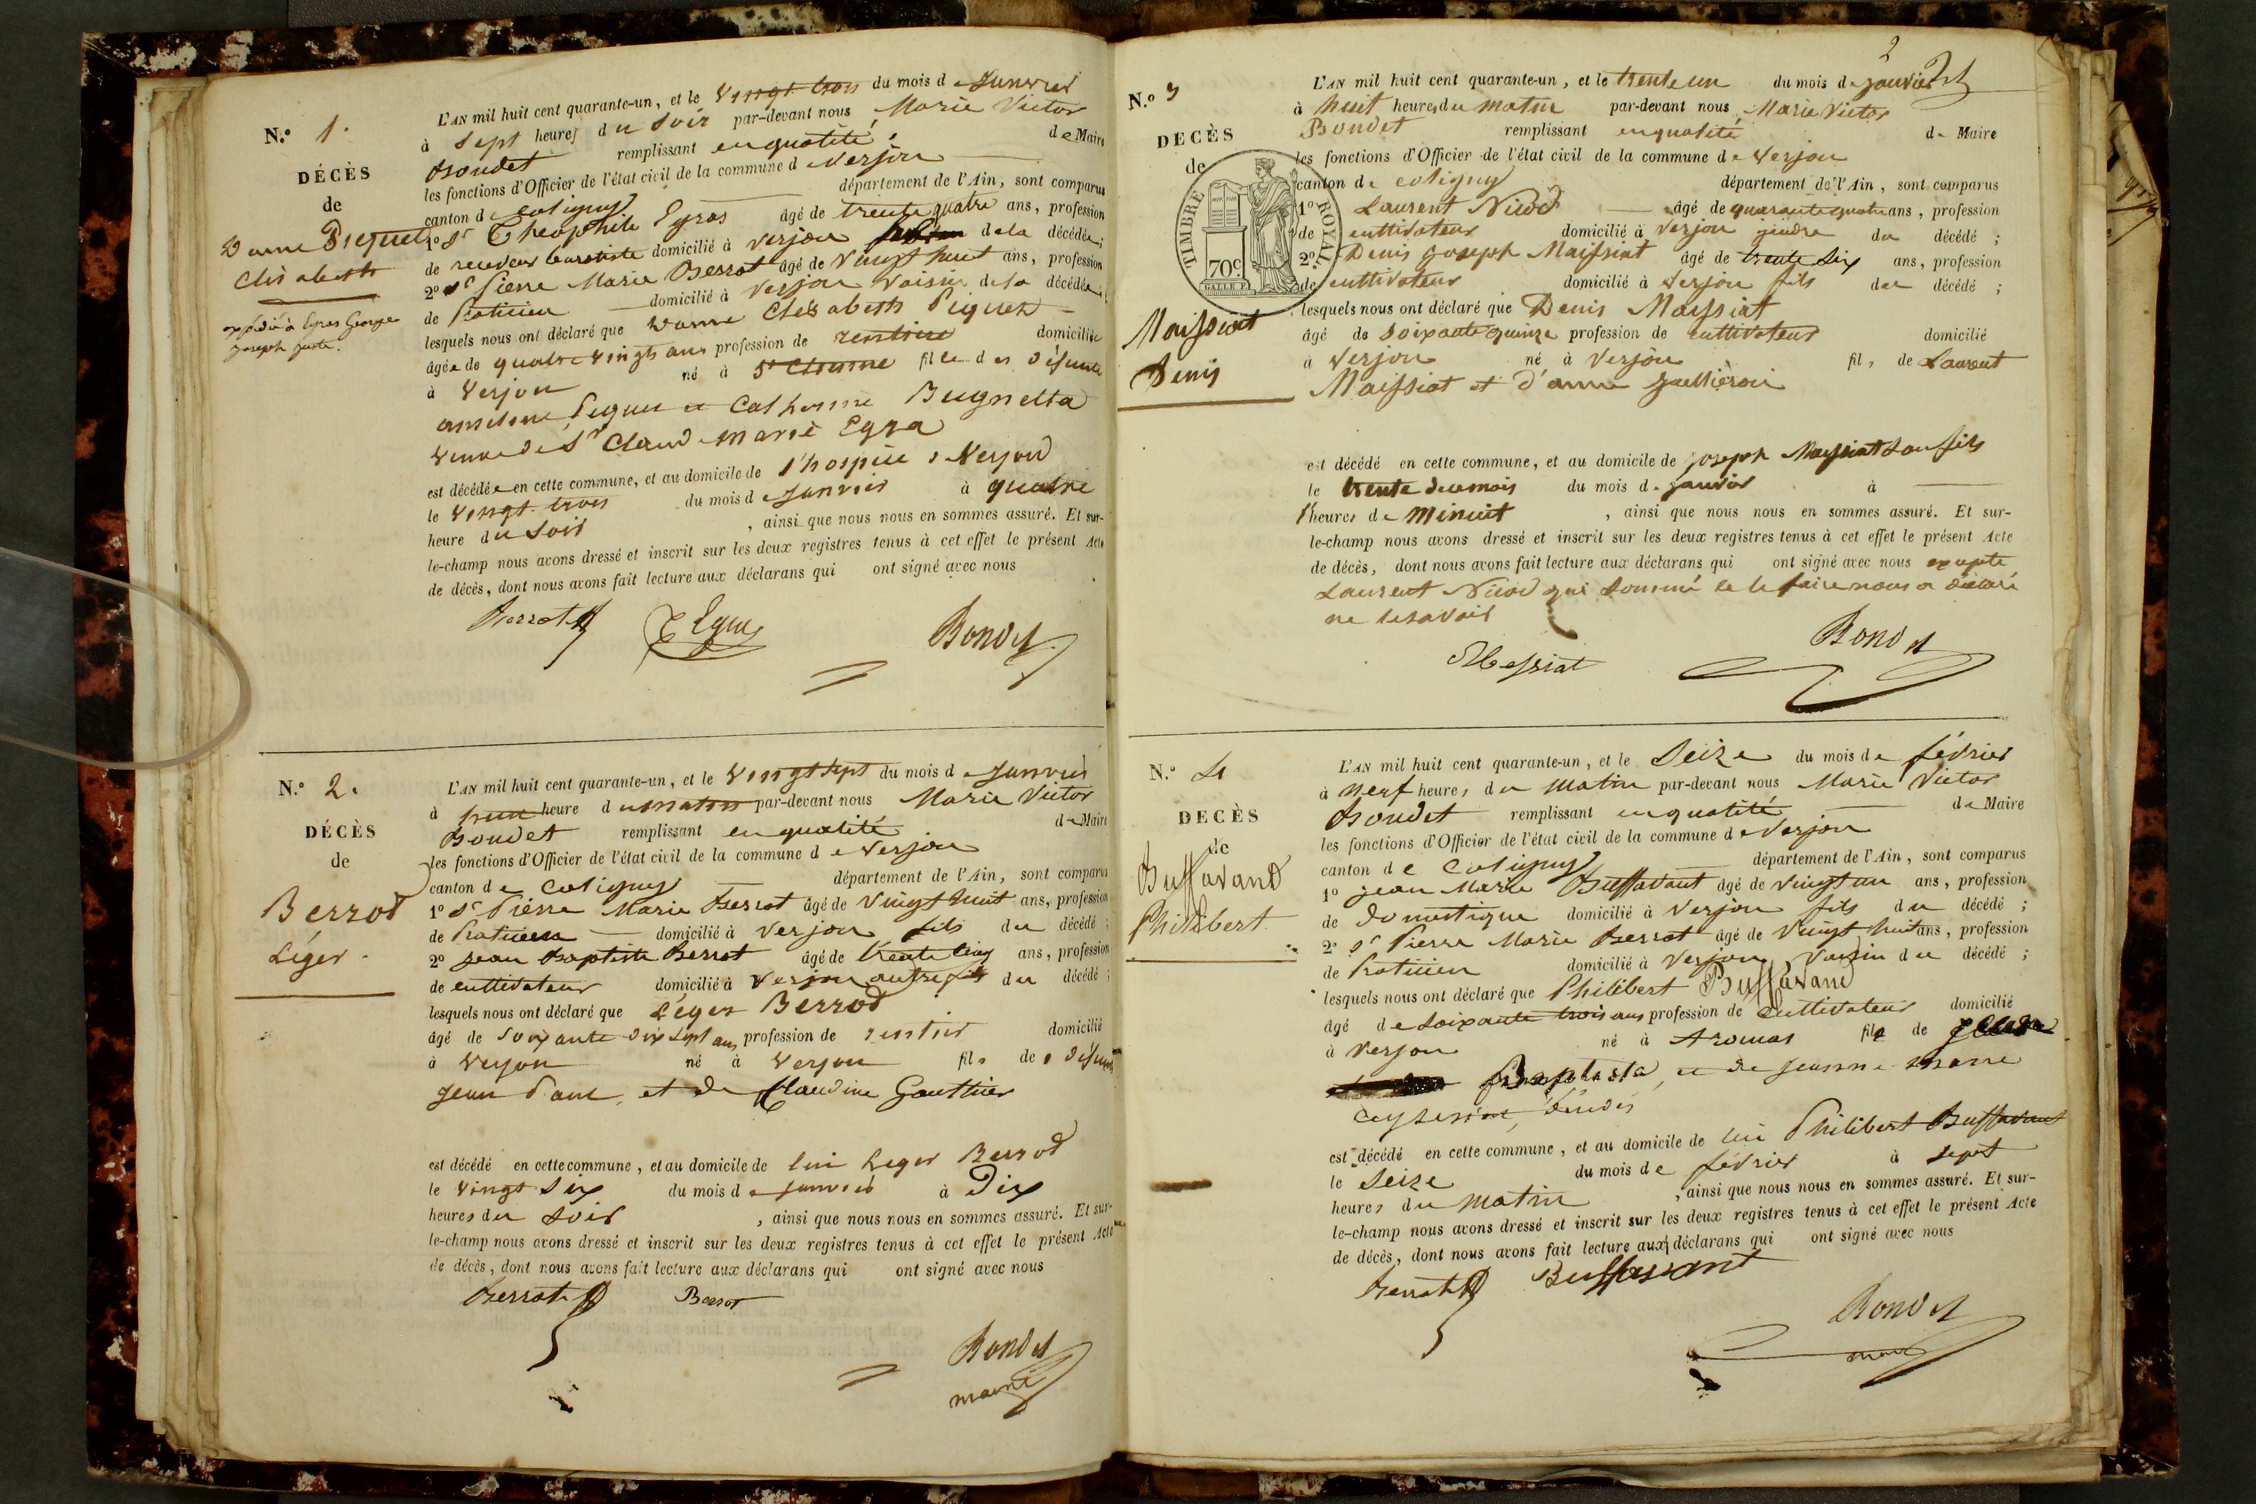 N.º 1.
DÉCÈS
de
Danne Piequet
Elisabeth
expédié à Egras George
Joseph juste.
L'AN mil huit cent quarante-un, et le vingt trois du mois de Janvier
à Sept heures du Soir par-devant nous Marie Victor
Bondet remplissant en qualité de Maire
les fonctions d'Officier de l'état civil de la commune de Verjon
canton de Coligny département de l'Ain, sont comparus
1º Sr Théophile Egras âgé de trente quatre ans, profession
de receveur buraliste domicilié à Verjon de la décédée ;
2º Sr Pierre Marie Berrot âgé de vingt huit ans, profession
de Praticien domicilié à Verjon voisin de la décédée ;
lesquels nous ont déclaré que Danne Elisabeth Piquet
âgée de quatre vingts ans profession de rentiere domiciliée
à Verjon né à St Etienne fille des défunts
anselme Piquet et Catherine Bugnetta
veuve de Sr Claude Marie Egra
est décédée en cette commune, et au domicile de l'hospice à Verjon
le vingt trois du mois de Janvier à quatre
heure du Soir , ainsi que nous nous en sommes assuré. Et sur-
le-champ nous avons dressé et inscrit sur les deux registres tenus à cet effet le présent Acte
de décès, dont nous avons fait lecture aux déclarans qui ont signé avec nous
Berrot Egras Bondet
N.º 2.
DÉCÈS
de
Berrod
Léger.
L'AN mil huit cent quarante-un, et le vingt sept du mois de Janvier
à heure du matin par-devant nous Marie Victor
Bondet remplissant en qualité de Maire
les fonctions d'Officier de l'état civil de la commune de Verjon
canton de Coligny département de l'Ain, sont comparus
1º Sr Pierre Marie Berrot âgé de vingt huit ans, profession
de Praticien domicilié à Verjon fils du décédé ;
2º Jean Baptiste Berrot âgé de trente cinq ans, profession
de cultivateur domicilié à Verjon autre fils du décédé ;
lesquels nous ont déclaré que Léger Berrod
âgé de soixante dix sept ans profession de rentier domicilié
à Verjon né à Verjon fils de défunt
Jean Paul, et de Claudine Gauthier
est décédé en cette commune, et au domicile de lui Leger Berrod
le vingt six du mois de Janvier à Dix
heures du Soir , ainsi que nous nous en sommes assuré. Et sur-
le-champ nous avons dressé et inscrit sur les deux registres tenus à cet effet le présent Acte
de décès, dont nous avons fait lecture aux déclarans qui ont signé avec nous
Berrot Berrot
Bondet
maire
2
N.º 3
DECÈS
de
TIMBRE ROYAL
70c
Maissiat
Denis
L'AN mil huit cent quarante-un, et le trente un du mois de janvier
à huit heures du matin par-devant nous Marie Victor
Bondet remplissant en qualité de Maire
les fonctions d'Officier de l'état civil de la commune de Verjon
canton de coligny département de l'Ain, sont comparus
1º Laurent Nicod âgé de quarante quatre ans, profession
de cultivateur domicilié à Verjon gendre du décédé ;
2º Denis Joseph Maissiat âgé de trente six ans, profession
de cultivateur domicilié à Verjon fils du décédé ;
lesquels nous ont déclaré que Denis Maissiat
âgé de soixante quinze profession de cultivateur domicilié
à Verjon né à Verjon fils de Laurent
Maissiat et d'anne
est décédé en cette commune, et au domicile de joseph Maissiat son fils
le trente du mois de janvier à
heures de minuit , ainsi que nous nous en sommes assuré. Et sur-
le-champ nous avons dressé et inscrit sur les deux registres tenus à cet effet le présent Acte
de décès, dont nous avons fait lecture aux déclarans qui ont signé avec nous excepté
Laurent Nicod qui sommé de le faire nous a déclaré
ne le savoir
Messiat Bondet
N.º 4
DECÈS
de
Buffavand
Philibert.
L'AN mil huit cent quarante-un, et le Seize du mois de février
à neuf heures du matin par-devant nous Marie Victor
Bondet remplissant en qualité de Maire
les fonctions d'Officier de l'état civil de la commune de Verjon
canton de Coligny département de l'Ain, sont comparus
1º jean Marie Buffavant âgé de vingt un ans, profession
de domestique domicilié à Verjon fils du décédé ;
2º Sr Pierre Marie Berrot âgé de vingt huit ans, profession
de Praticien domicilié à Verjon voisin du décédé ;
lesquels nous ont déclaré que Philibert Buffavand
âgé de soixante trois ans profession de Cultivateur domicilié
à Verjon né à Aromas fils de
Baptista, et de Jeanne Marie
est décédé en cette commune, et au domicile de lui Philibert Buffavant
le Seize du mois de février à sept
heures du matin , ainsi que nous nous en sommes assuré. Et sur-
le-champ nous avons dressé et inscrit sur les deux registres tenus à cet effet le présent Acte
de décès, dont nous avons fait lecture aux déclarans qui ont signé avec nous
Berrot Buffavant
Bondet
maire